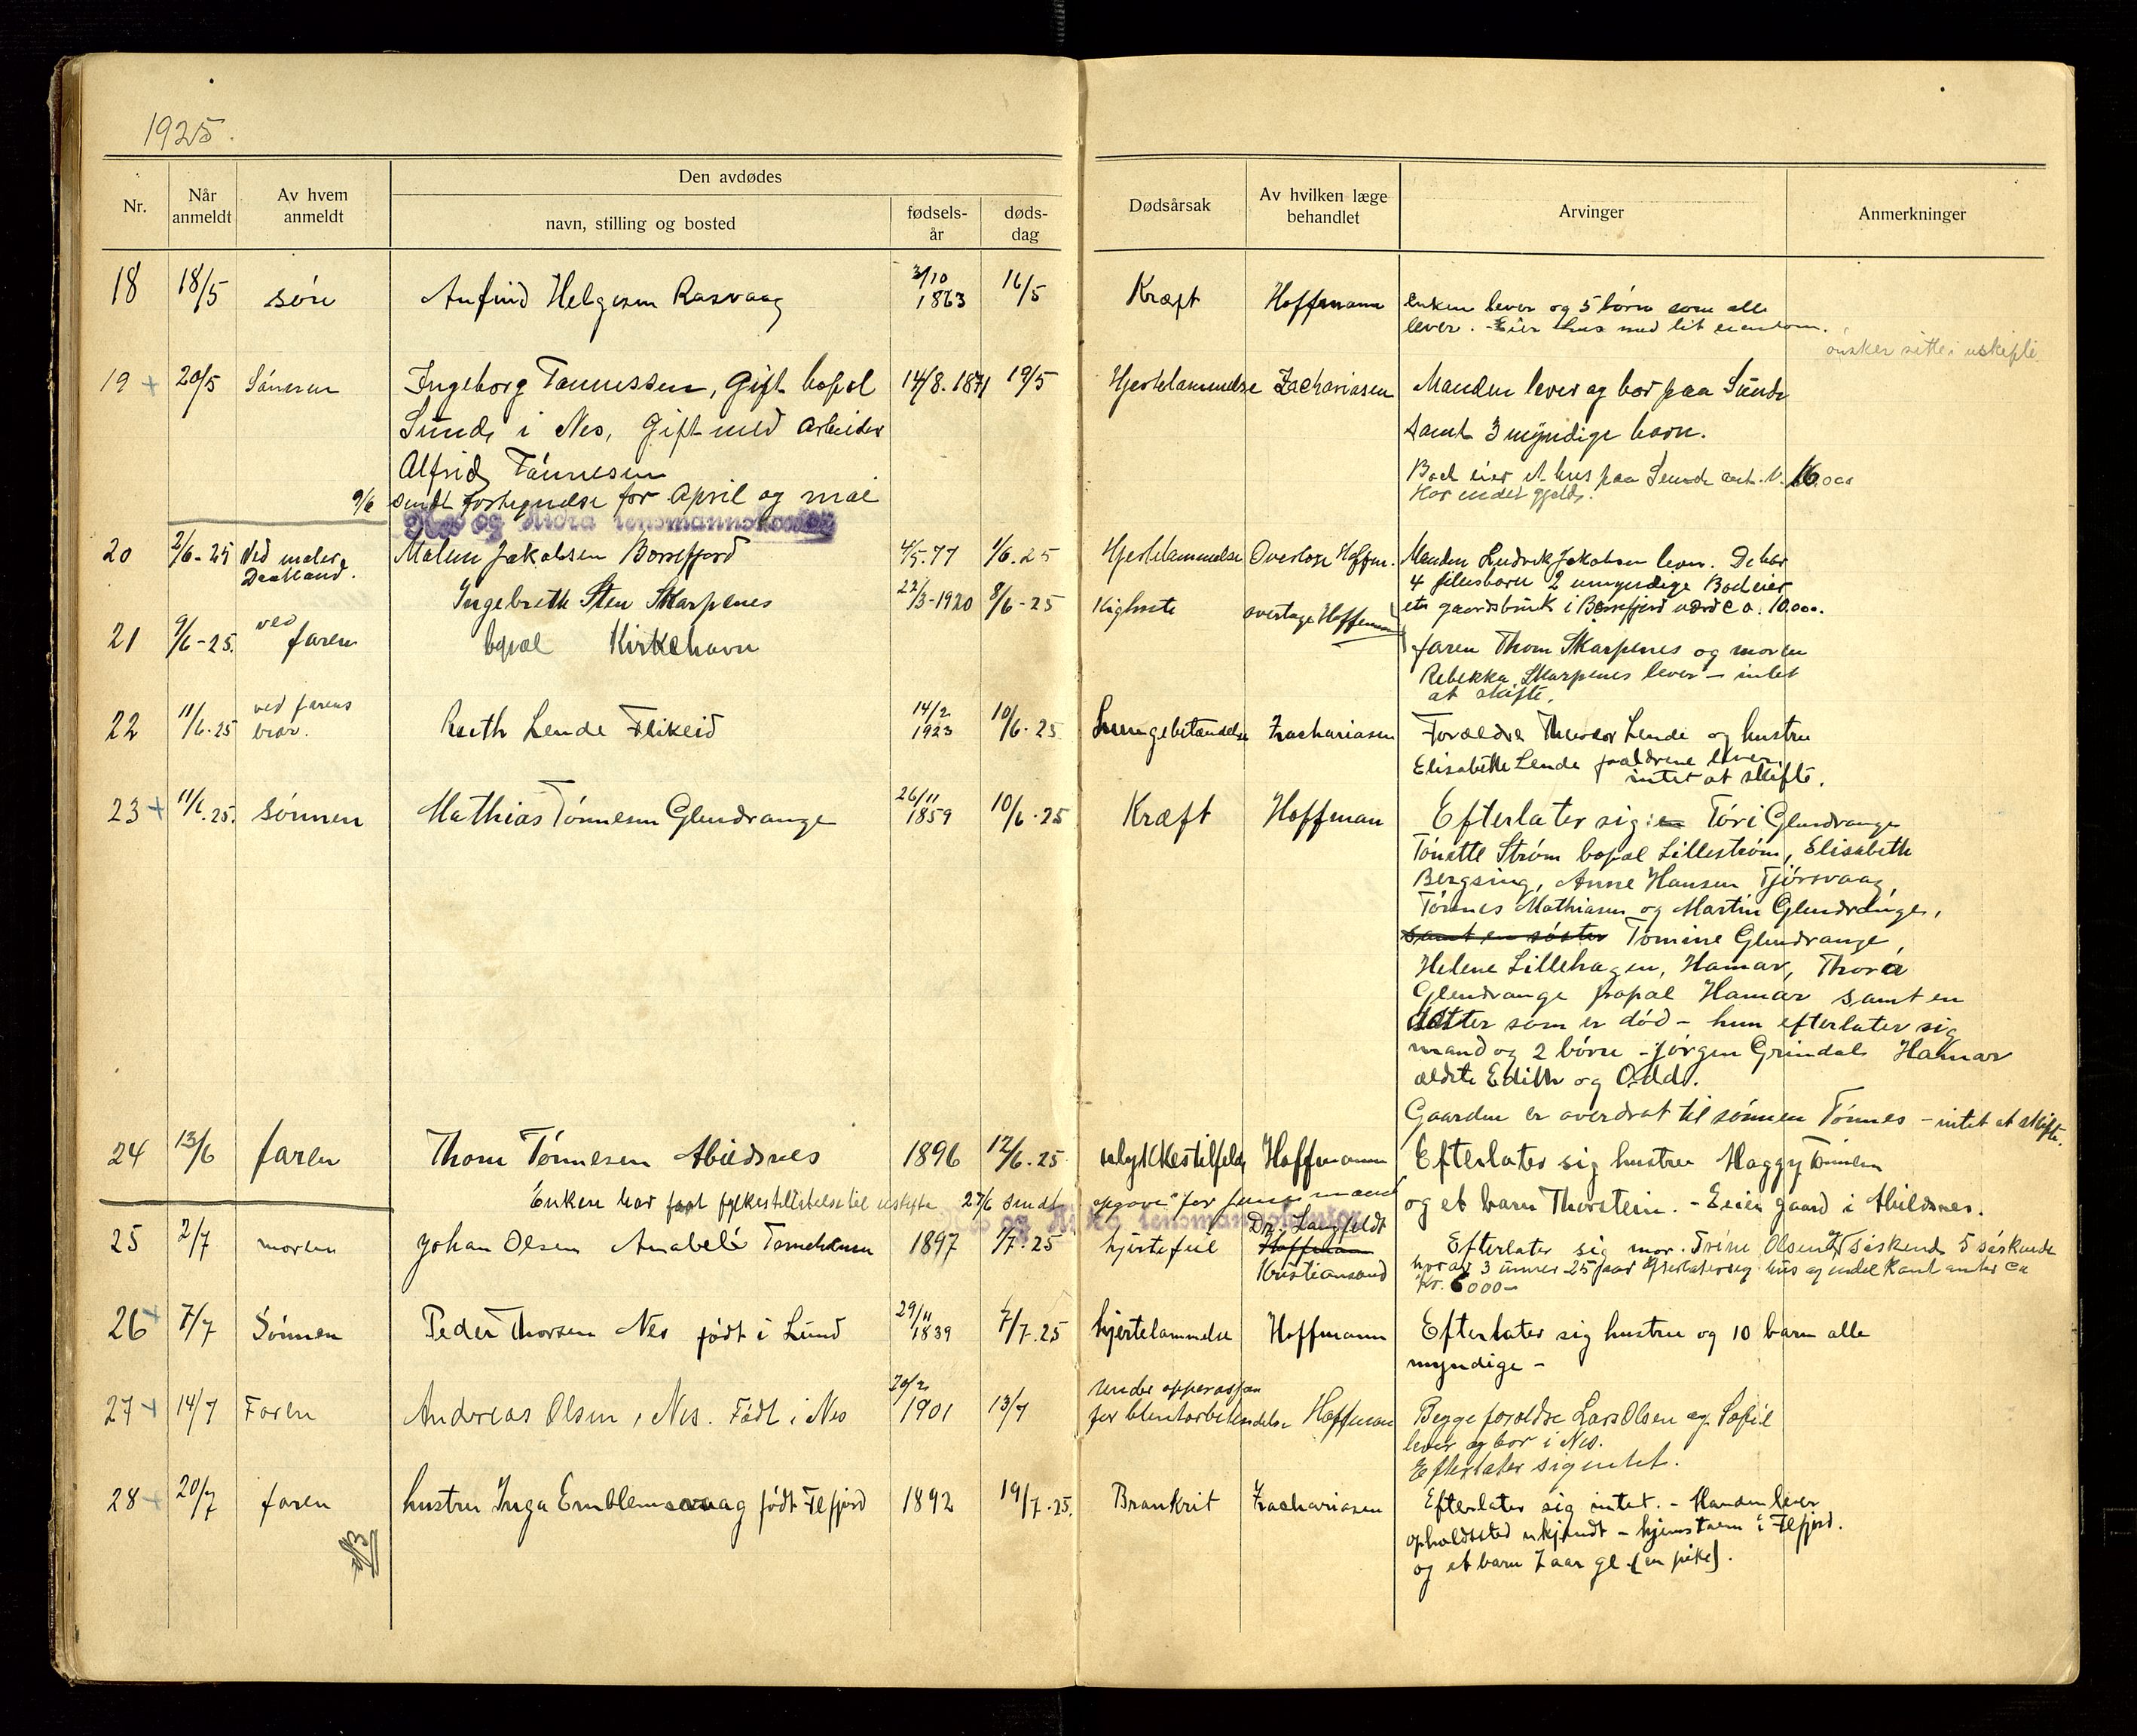 1925.
Nr.
Når anmeldt
Av hvem anmeldt
Den avdødes
navn, stilling og bosted
fødsels-år
døds-dag
Dødsårsak
Av hvilken læge behandlet
Arvinger
Anmerkninger
18 18/5 søn Anfind Helgesen Rasvaag 3/10 1863 16/5 Kræft Hoffmann
Enken lever og 5 børn som alle
lever. - Eier hus med lit eiendom.
ønsker sitte i uskifte
19 20/5 Sønnen Ingeborg Tønnessen, Gift bopæl 14/8.1871 19/5 Hjertelammelse Zachariasen
Sunde i Nes, Gift med arbeider
Alfrid Tønnesen
Manden lever og bor paa Sunde
samt 3 myndige barn.
Boet eier et hus paa Sunde ant. V. 16.000
Har endel gjæld.
9/6 sendt fortegnelse for April og mai
Nes og Hidra lensmannskontor
20 2/6-25 Ved maler Malen Jakobsen Borsefjord 4/5.77 1/6.25 Hjertelammelse Overlæge Hoffm.
Manden Ludvik Jakobsen lever. De har
4 fellesbarn 2 umyndige Boet eier
et gaardsbruk i Borsefjord værd ca. 10.000.
21 9/6-25. ved faren Ingebreth Sten Skarpenes 22/3-1920 8/6-25 Kighoste overlæge Hoffmann
bopæl Kirkehavn
faren Thom Skarpenes og moren
Rebekka Skarpenes lever - intet
at skifte.
22 11/6.25 ved farens bror. Ruth Lende Flikeid 14/2 1923 10/6.25 Lungebetændelse Zachariasen
Forældre Theodor Lende og hustru
Elisabeth Lende forældrene lever,
intet at skifte.
23 11/6.25. sønnen Mathias Tønnesen Glendrange 26/11 1859 10/6.25 Kræft Hoffman
Efterlater sig: Tøri Glendrange
Tønette Strøm bopæl Lillestrøm, Elisabeth
Bergsing, Anne Hansen Tjørsvaag,
Tønnes Mathiasen og Martin Glendrange,
samt en søster Tomine Glendrange,
Helene Lillehagen, Hamar, Thora
Glendrange bopæl Hamar samt en
datter som er død - hun efterlater sig
mand og 2 børn - Jørgen Grindal Hamar
ældste Edith og Odd.
Gaarden er overdrat til sønnen Tønnes - intet at skifte.
24 13/6 faren Thom Tønnesen Abildsnes 1896 12/6.25 ulykkestilfelde Hoffmann
Efterlater sig hustru Maggy Tønnesen
og et barn Thorstein. - Eier gaard i Abildsnes.
Enken har faat fylkestillatelse til uskifte 27/6 sendt opgave for juni maaned
Nes og Hidra lensmannskontor
25 2/7 moren Johan Olsen Anabeló 1897 1/7.25 hjertefeil Dr. Langfeldt
Hoffmann
Kristiansand
Efterlater sig mor. Trine Olsen og søskende 5 søskende
hvorav 3 under 25 aar
Kr. 6000-
26 7/7 Sønnen Peder Thorsen Nes født i Lund 29/11 1839 7/7.25 hjertelammelse Hoffmann
Efterlater sig hustru og 10 barn alle
myndige -
27 14/7 Faren Andreas Olsen, Nes. Født i Nes 20/2 1901 13/7 under opperasjon
for blentarbetendelse Hoffman
Begge foreldre Lars Olsen og Sofie
lever og bor i Nes.
Efterlater sig intet.
28 20/7 faren hustru Inga Emblemsvaag født Flfjord 1892 19/7.25. Brankrit Zachariasen
Efterlater sig intet. - Manden lever
opholdsted ukjendt - hjemstavn i Flfjord.
og et barn 7 aar gl. (en pike).